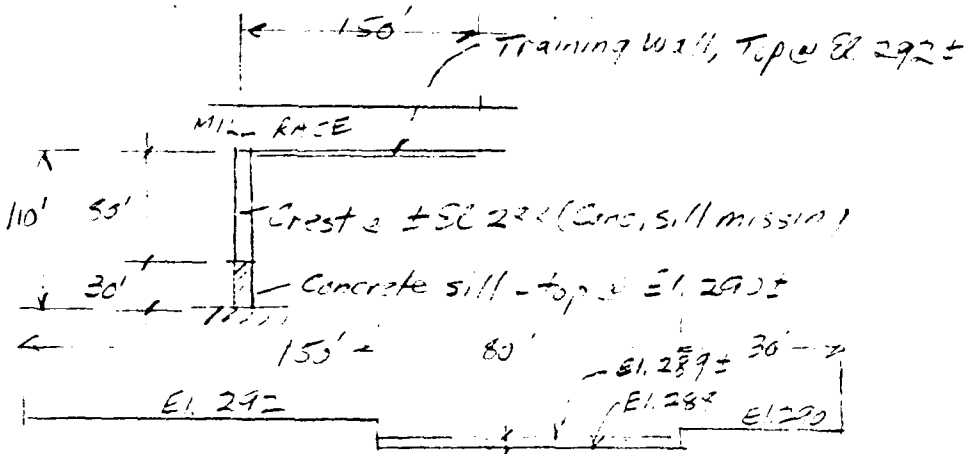 150'
Training Wall, Top @ El. 292±
MILL RACE
110'
Crest @ ± El 288 (Conc. sill missin)
30'
Concrete sill - top @ El. 290±
150' ±
80'
30'
El. 289±
El. 292
El. 288
El 290